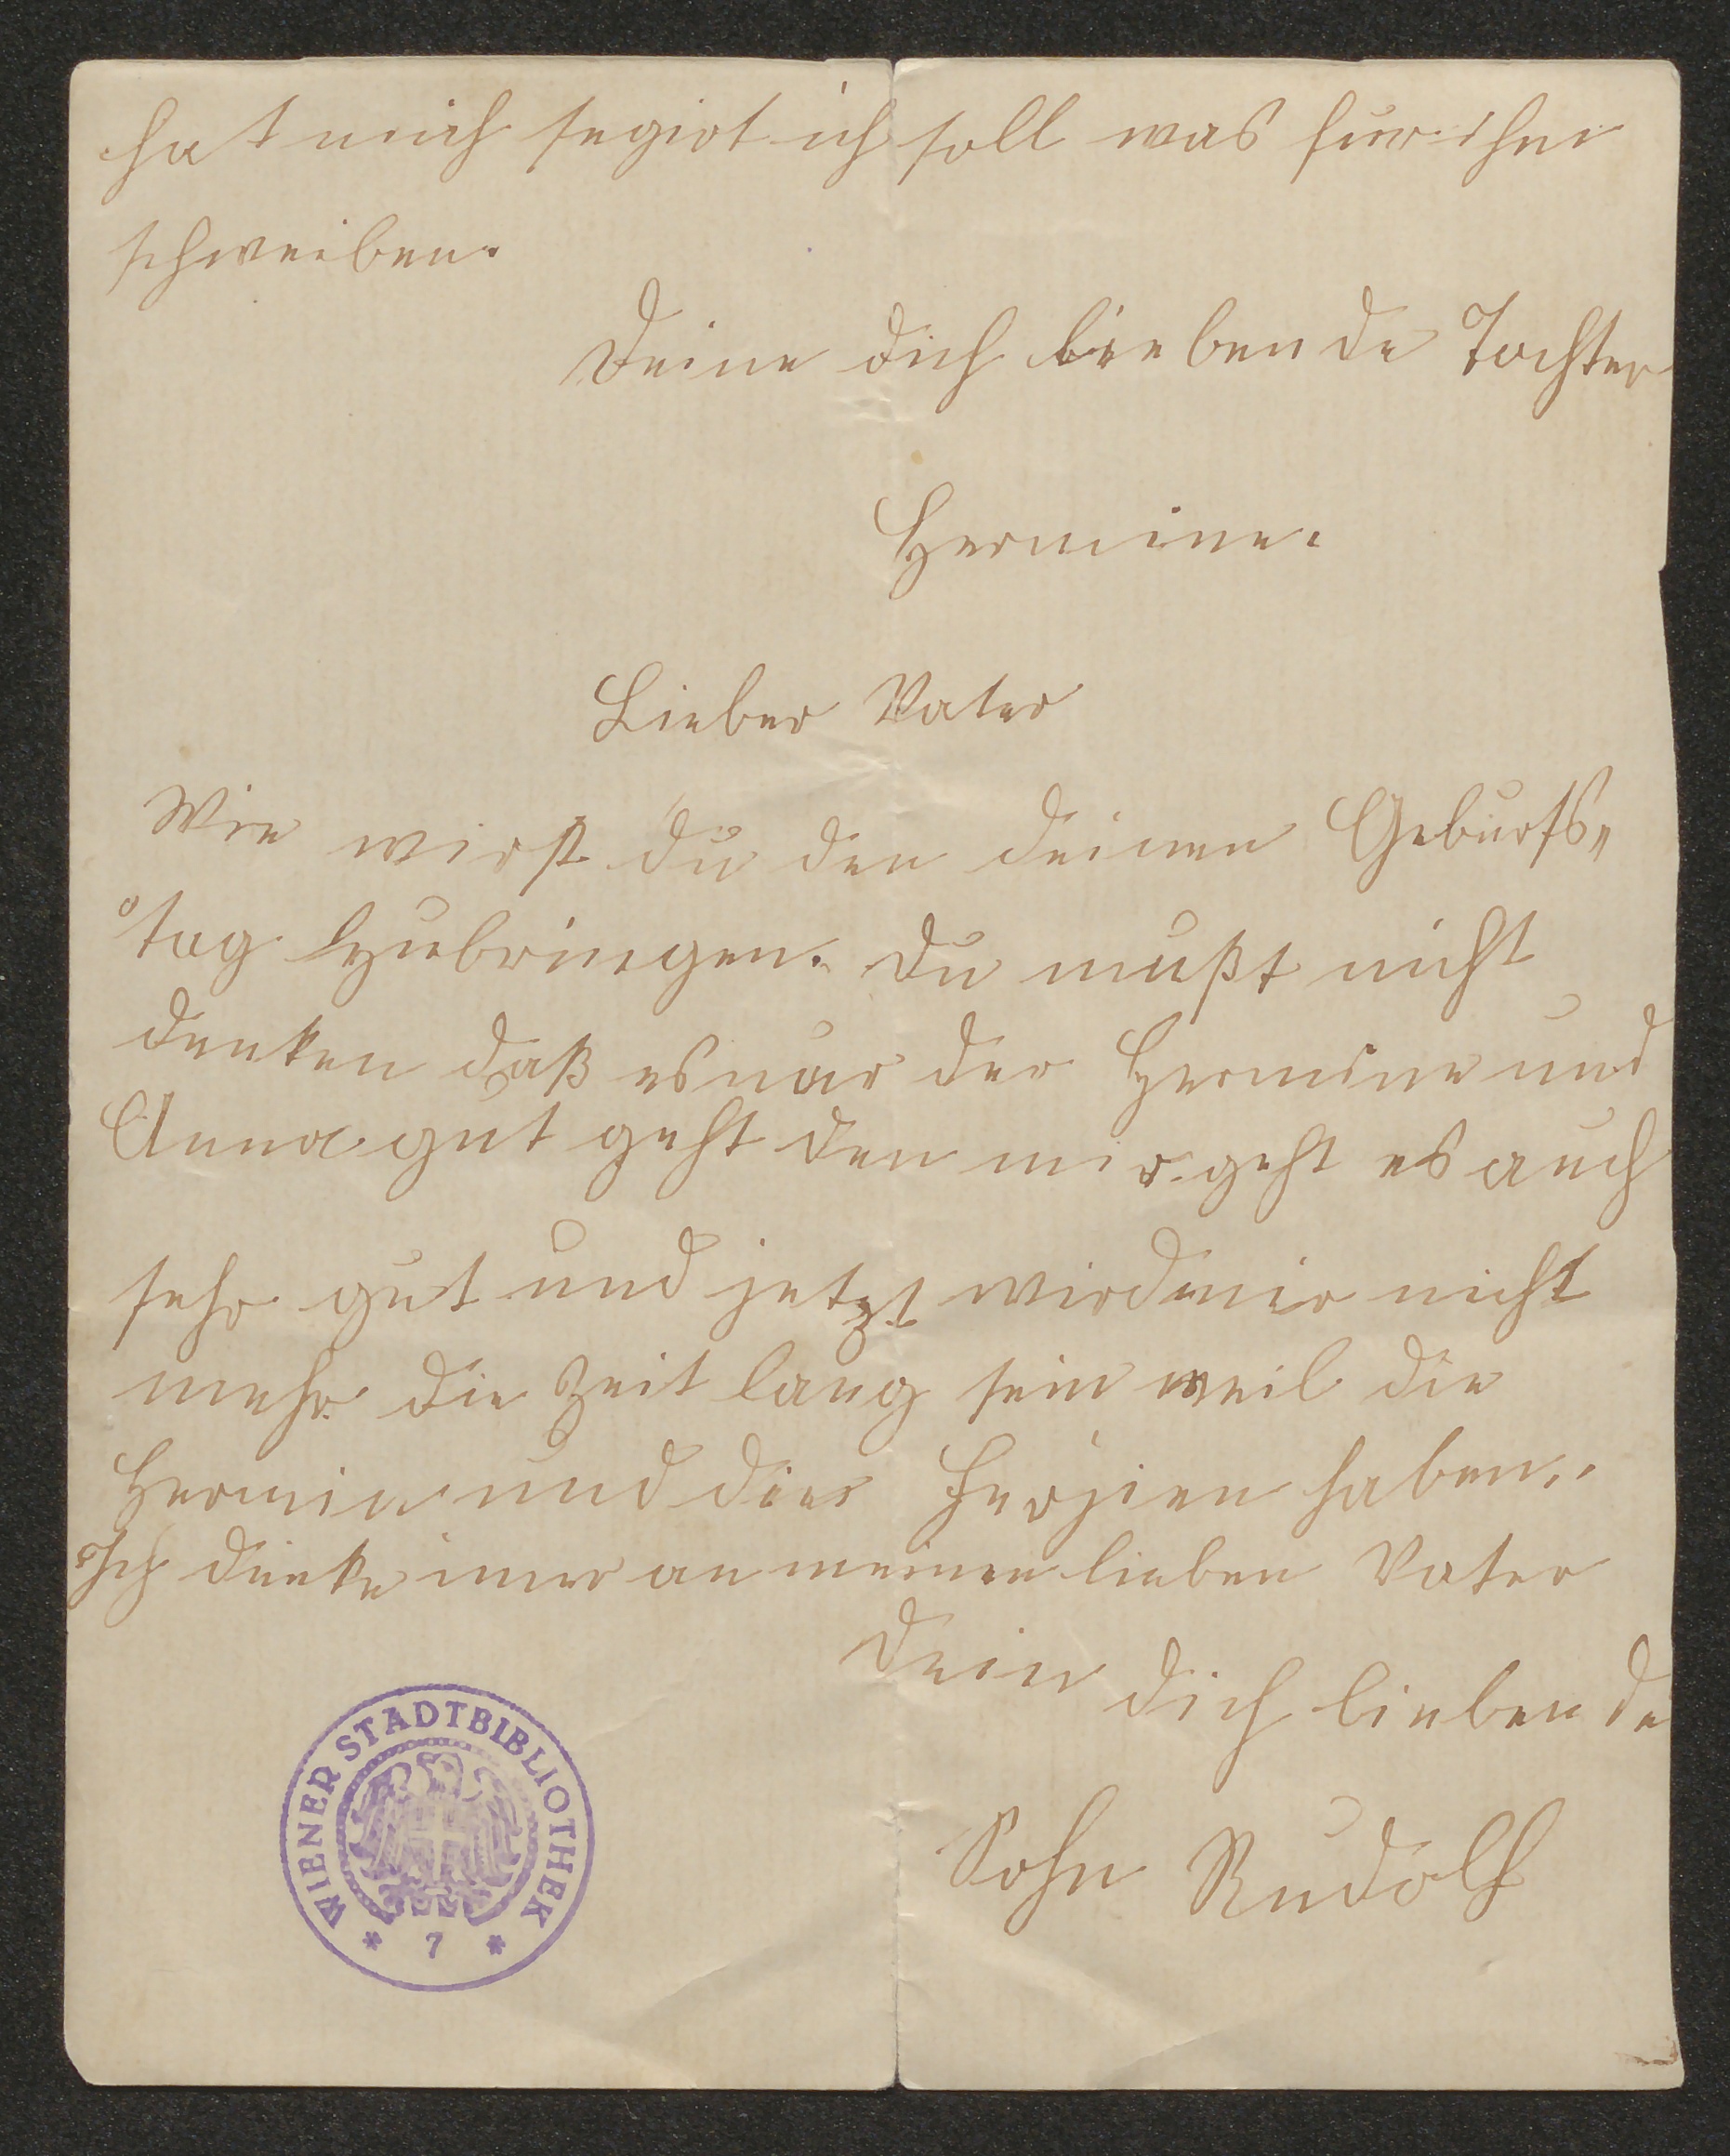 hat mich segirt ich soll was für ihm
schreiben.
Deine dich liebende Tochter
Hermine.
Lieber Vater
Wie wirst du den deinen Geburts„
tag zubringen. Du mußt nicht
denken daß es nur der Hermine und
Anna gut geht den mir geht es auch
sehr gut und jetzt wird mir nicht
mehr die Zeit lang sein weil die
Hermin und die Ferzien haben.
Ich denke imer an meinen lieben Vater
Dein dich liebende
Sohn Rudolf
WIENER STADTBIBLIOTHEK
* 7 *